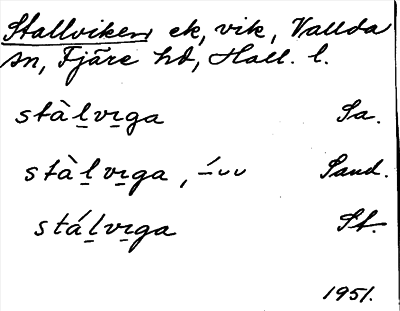 Stallviken, ek, vik, Vallda
sn, Fjäre hd, Hall. l.
stàl̲vı̲ga Sa.
stàl̲vı̲ga, –́ ᴗ ᴗ Sand.
stál̲vı̲ga St.
1951.